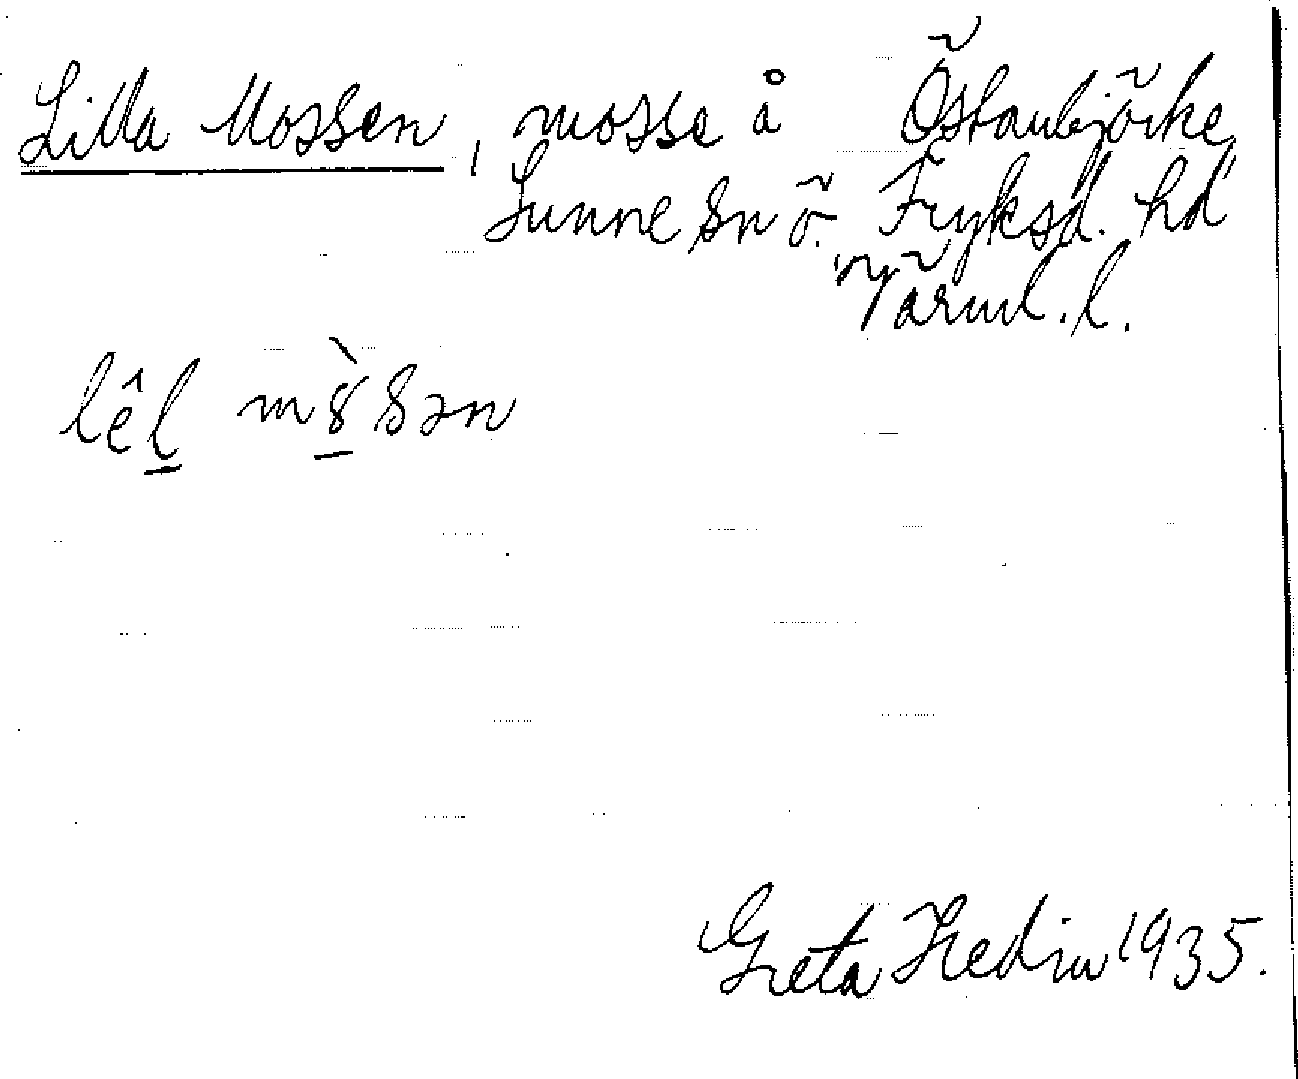 Lilla Mossen, mosse å Östanbjörke
Sunne sn ö. Fryksd. hd
Värml. l.
lêl mɤ̀sən
Greta Hedin 1935.